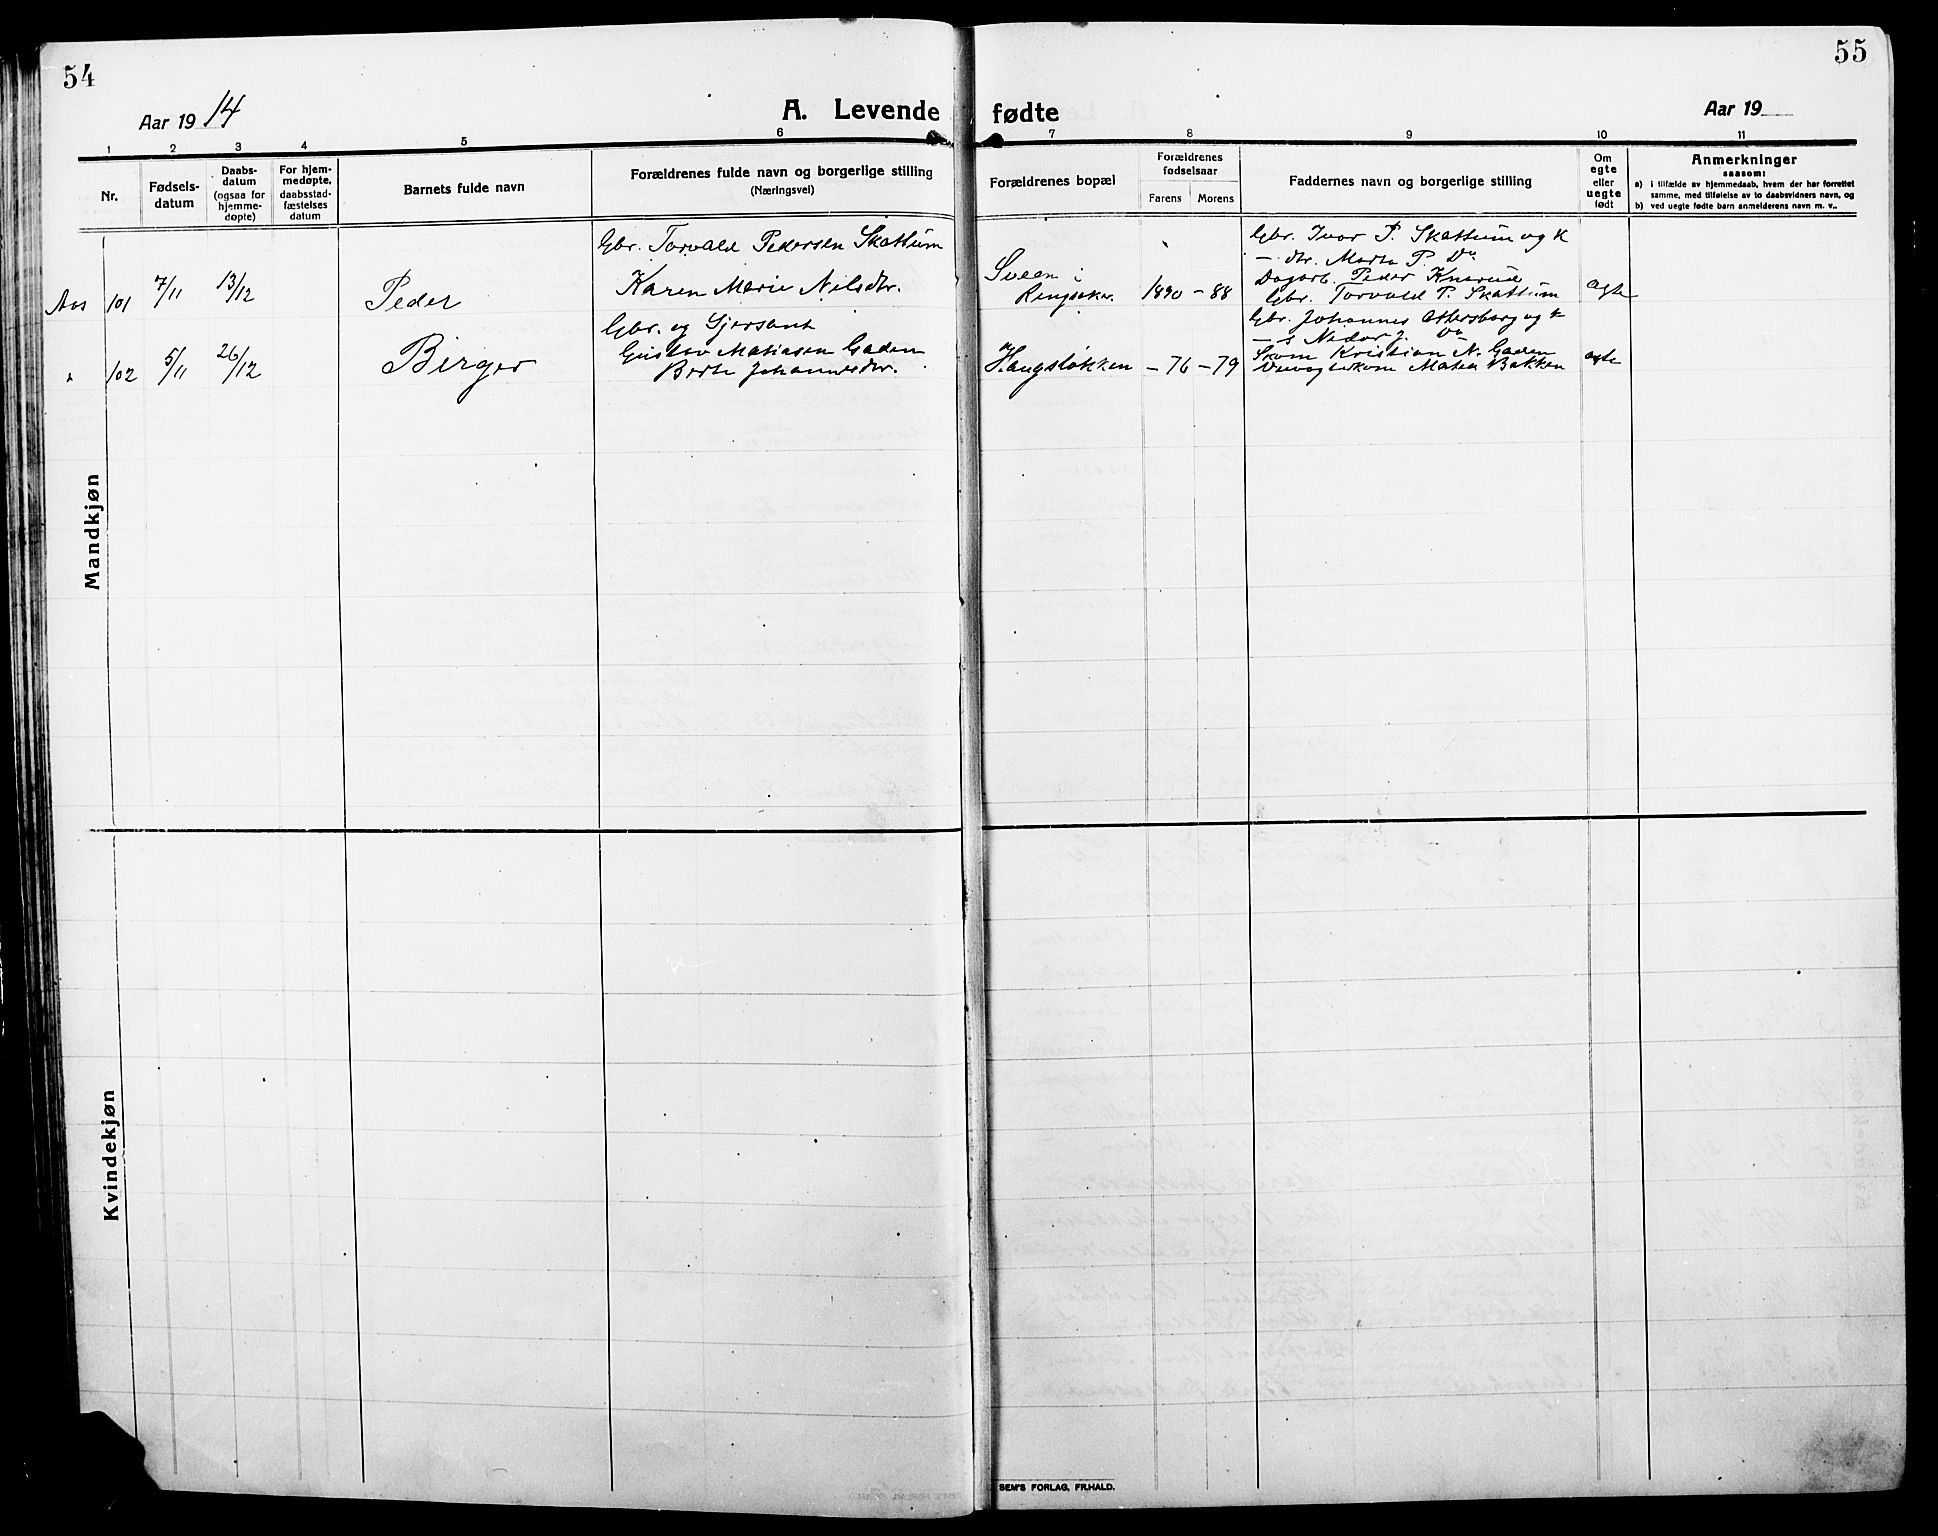 54
Aar 1914
A. Levende
1
2
3
4
5
6
Nr.
Fødsels-
datum
Daabs-
datum
(ogsaa for
hjemme-
døpte)
For hjem-
medøpte,
daabsstad-
fæstelses
datum
Barnets fulde navn
Forældrenes fulde navn og borgerlige stilling
(Næringsvei)
Mandkjøn
Aas 101 7/11 13/12 Peder
Gbr. Torvald Pedersen Skattum
Karen Marie Nilsdtr.
" 102 5/11 26/12 Birger
Gbr. og Sjersant
Gustav Matiasen Gaden
Berte Johannesdtr.
Kvindekjøn
55
fødte
Aar 19
7
8
9
10
11
Forældrenes bopæl
Forældrenes
fødselsaar
Farens
Morens
Faddernes navn og borgerlige stilling
Om
egte
eller
uegte
født
Anmerkninger
saasom:
a) i tilfælde av hjemmedaab, hvem der har forrettet
samme, med tilføielse av to daabsvidners navn, og
b) ved uegte fødte barn anmelderens navn m. v..
Sveen i
Ringsaker. 1890 - 88
Gbr. Ivar P. Skattum og k
- dtr. Marta P. Do
Dagarb. Peder Knarud
Gbr. Torvald P. Skattum
ægte
Haugsløkken - 76 - 79
Gbr. Johannes Attersborg og k
Kristian N. Gaden
Matea Bakken
ægte
SEM'S FORLAG, FR.HALD.